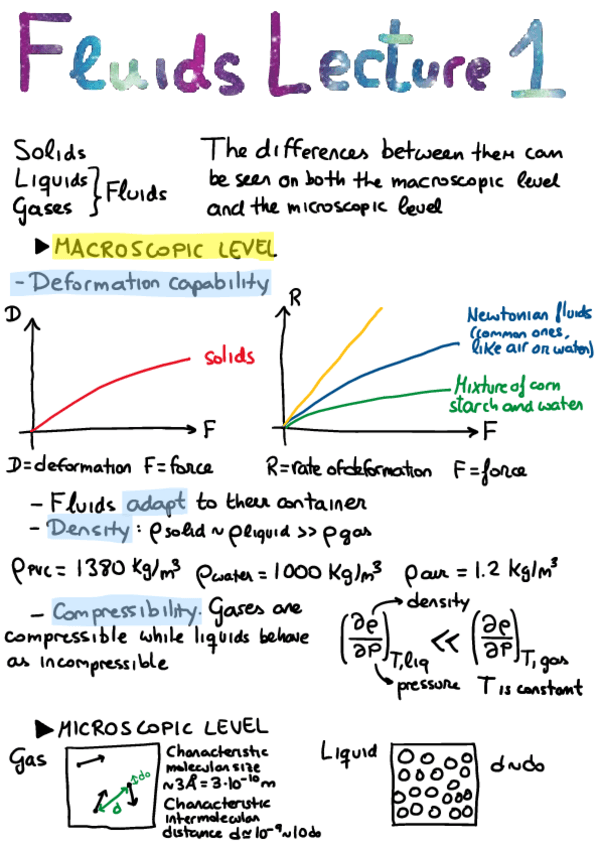 Fluids Lecture 1
Solids
Liquids
Gases
Fluids
The differences between them can
be seen on both the macroscopic level
and the microscopic level
▶ MACROSCOPIC LEVEL
- Deformation capability
D
solids
F
D=deformation F=force
R
Newtonian fluids
(common ones,
like air or water)
Mixture of corn
starch and water
F
R=rate of deformation F=force
- Fluids adapt to their container
- Density: ρsolid ~ ρliquid >> ρgas
ρPVC = 1380 Kg/m³ ρwater = 1000 Kg/m³ ρair = 1.2 Kg/m³
- Compressibility. Gases are
compressible while liquids behave
as incompressible
density
(∂ρ/∂P)T,liq << (∂ρ/∂P)T,gas
pressure T is constant
▶ MICROSCOPIC LEVEL
Gas
do
d
Characteristic
molecular size
~3Å = 3·10⁻¹⁰ m
Characteristic
intermolecular
distance d≃10⁻⁹~10do
Liquid
d~do